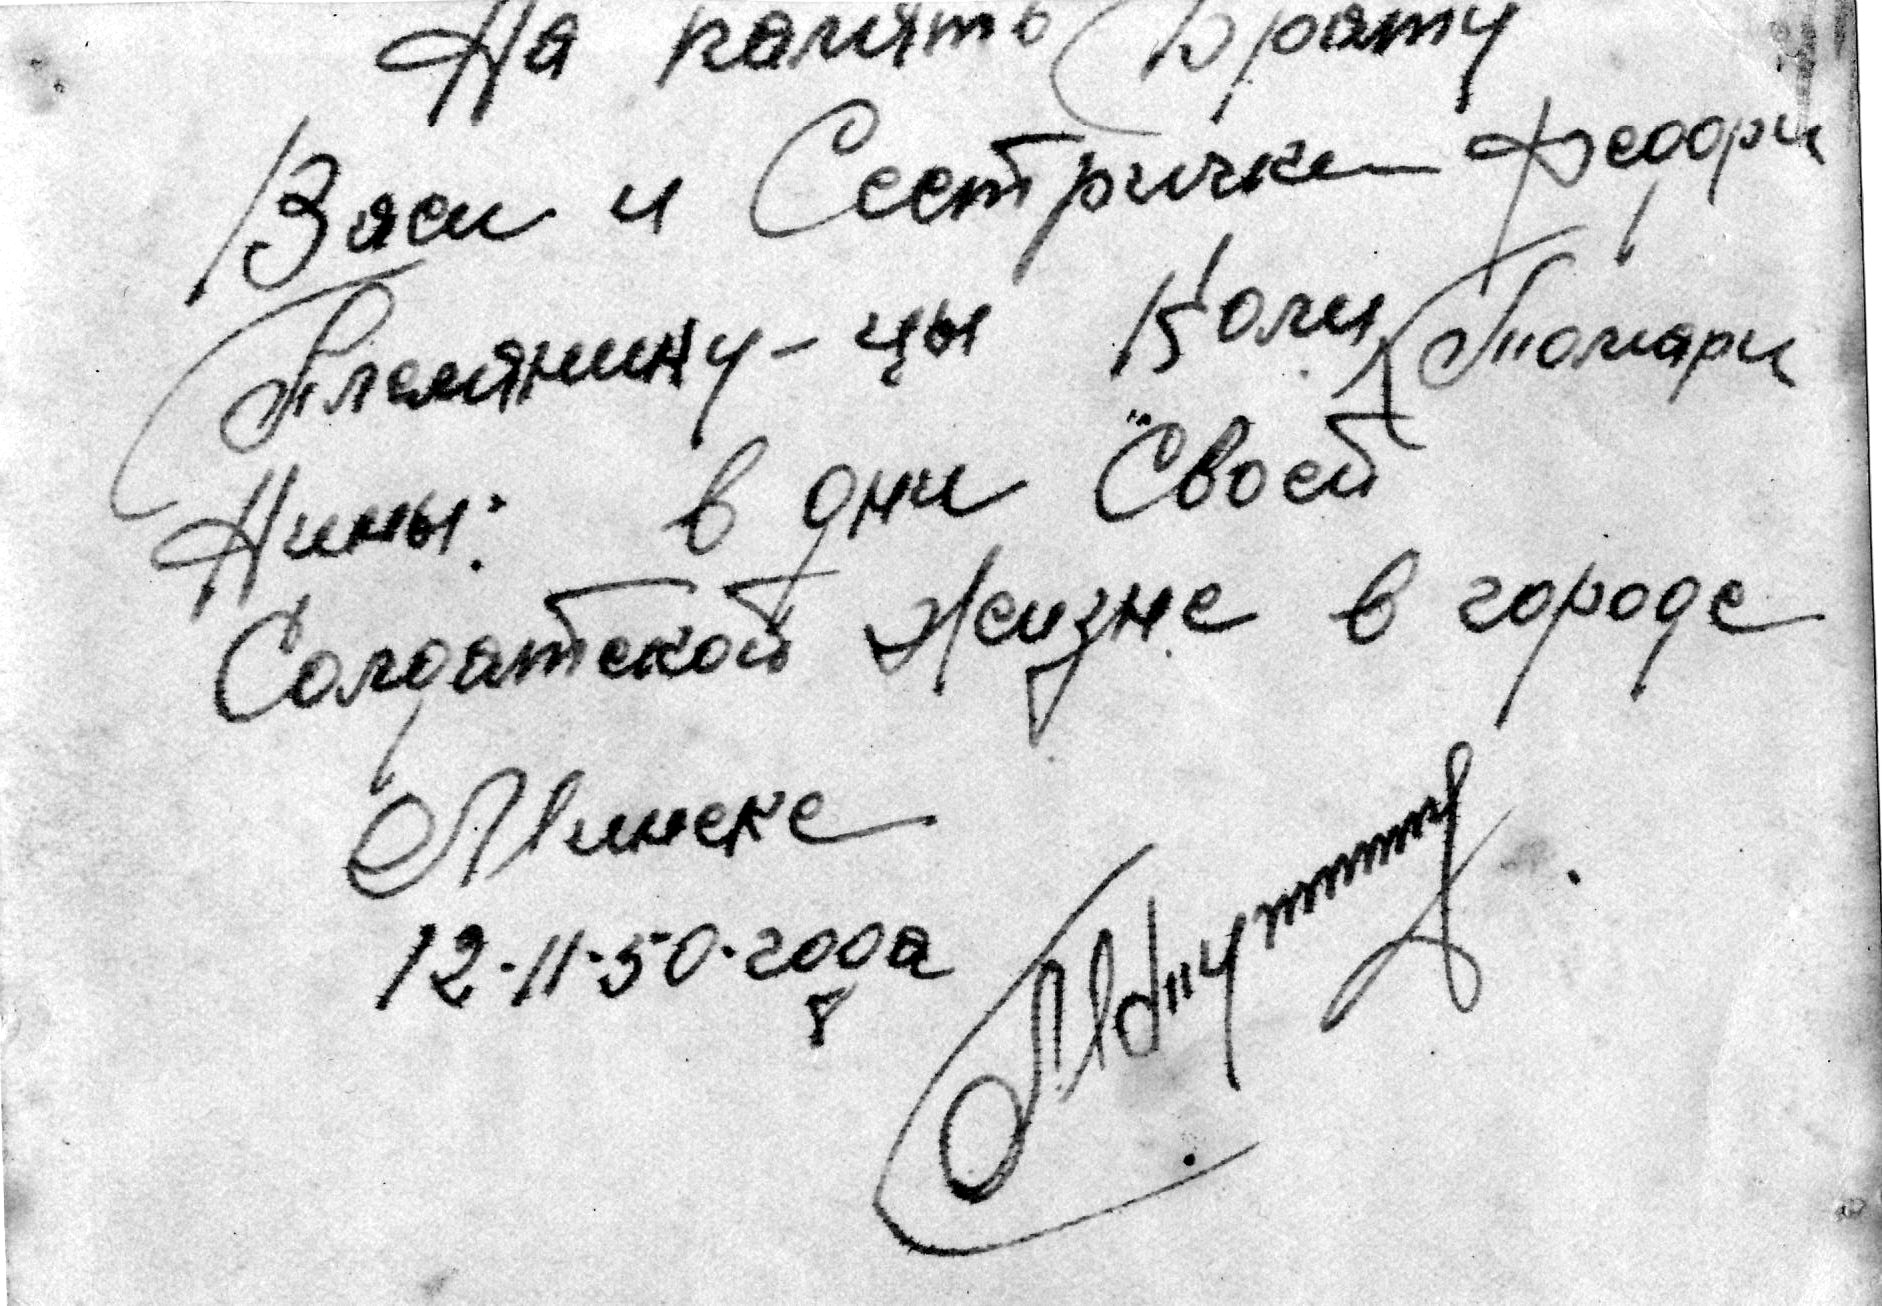 На память Брату
Васи и Сестричке Федори
Племянику-цы Коли, Томари
Нины: в дни Своей
Солдатской жизне в городе
Минске
12-11-50-года